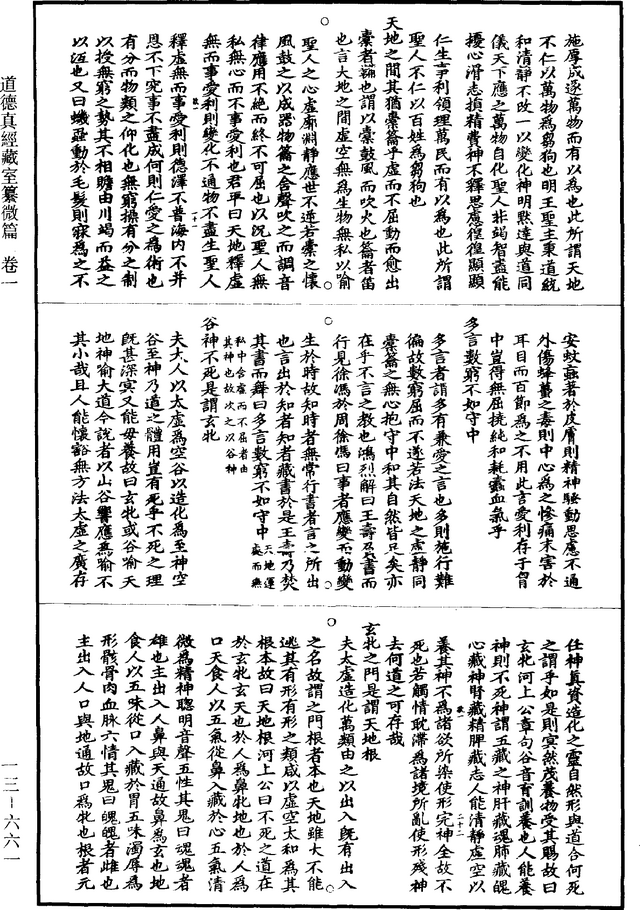 施厚成遂萬物而有以為也此所謂天地
不仁以萬物為芻狗也明王聖主秉道統
和清靜不改一以變化神明默達與道同
儀天下應之萬物自化聖人非竭智盡能
擾心滑志損精費神不釋思慮徨徨顯顯
仁生事利領理萬民而有以為也此所謂
聖人不仁以百姓為芻狗也
天地之間其猶橐籥乎虛而不屈動而愈出
橐者鞴也謂以橐鼓風而吹火也籥者笛
也言天地之間虛空無為生物無私以喻
聖人之心虛廓淵靜應世不逆若橐之懷
風鼓之以成器物籥之含聲吹之而調音
律應用不絕而終不可屈也以況聖人無
私無心而不事愛利也君平曰天地釋虛
無而事愛利則變化不通物不盡生聖人
釋虛無而事愛利則德澤不普海內不并
恩不下究事不盡成何則仁愛之為術也
有分而物類之仰化也無窮操有分之制
以授無窮之勢其不相贍由川竭而益之
以泣也又曰蟣蝨動於毛髮則寐為之不
安蚊蝱著於皮膚則精神騷動思慮不通
外傷蜂蠆之毒則中心為之慘痛末害於
耳目而百節為之不用此言愛利存于胷
中豈得無屈撓純和耗蠹血氣乎
多言數窮不如守中
多言者謂多有兼愛之言也多則施行難
徧故數窮屈而不遂若法天地之虛靜同
橐籥之無心抱守中和其自然皆足矣亦
在乎不言之教也鴻烈解曰王壽負書而
行見徐馮於周徐馮曰事者應變而動變
生於時故知時者無常行書者言之所出
也言出於知者知者藏書於是王壽乃焚
其書而舞曰多言數窮不如守中天地運處而無
私中含虛而不屈者由
其神也故次之以谷神
谷神不死是謂玄牝
夫大人以太虛為空谷以造化為至神空
谷至神乃道之體用豈有死乎不死之理
既甚深㝠又能母養故曰玄牝或谷喻天
地神喻大道今說者以山谷響應為喻不
其小哉且人能懷豁無方法太虛之廣存
任神真資造化之靈自然形與道合何死
之謂乎如是則㝠然茂養物受其賜故曰
玄牝河上公章句谷音育訓養也人能養
神則不死神謂五藏之神肝藏魂肺藏魄
心藏神腎藏精脾藏志人能清靜虛空以
養其神不為諸欲所染使形完神全故不
死也若觸情耽滯為諸境所亂使形殘神
去何道之可存哉
玄牝之門是謂天地根
夫太虛造化萬類由之以出入既有出入
之名故謂之門根者本也天地雖大不能
逃其有形有形之類咸以虛空太和為其
根本故曰天地根河上公曰不死之道在
於玄牝玄天也於人為鼻牝地也於人為
口天食人以五氣從鼻入藏於心五氣清
微為精神聰明音聲五性其鬼曰魂魂者
雄也主出入人鼻與天通故鼻為玄也地
食人以五味從口入藏於胃五味濁辱為
形骸骨肉血脉六情其鬼曰魄魄者雌也
主出入人口與地通故口為牝也根者元
道德真經藏室纂微篇 卷一
一三—六六一